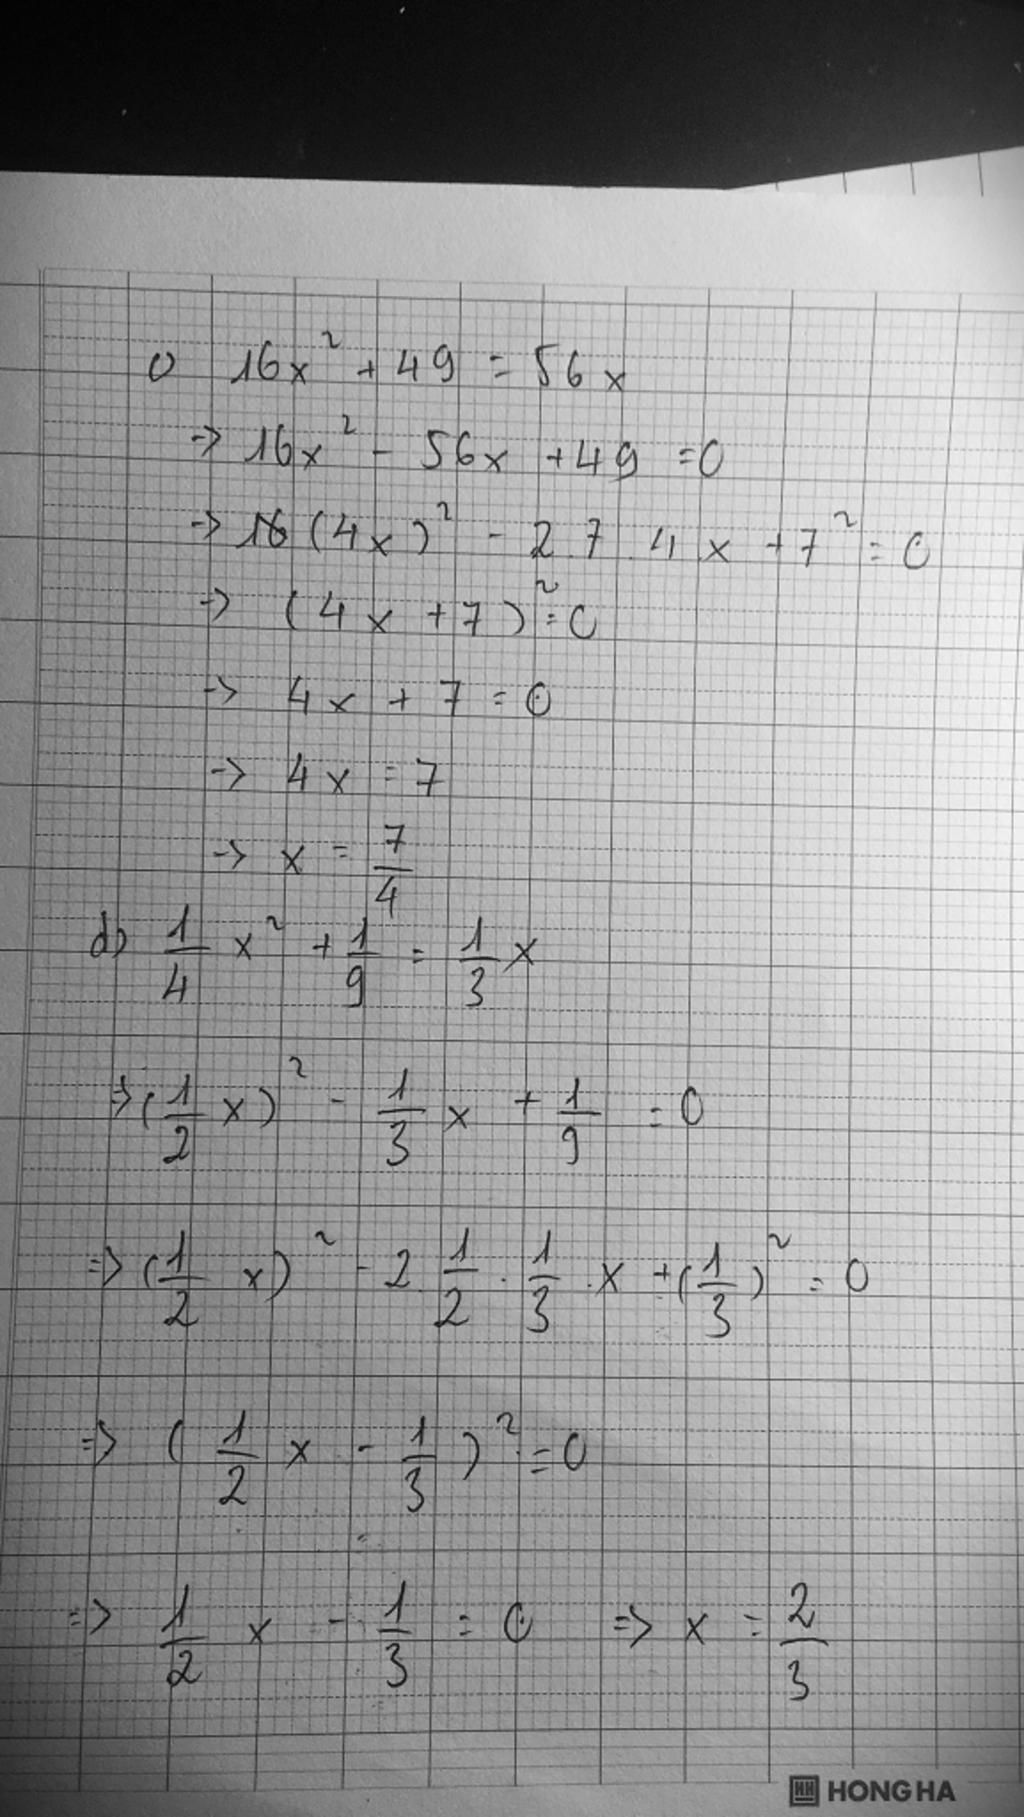 c) 16x² + 49 = 56x
-> 16x² - 56x + 49 = 0
-> (4x)² - 2.7.4x + 7² = 0
-> (4x + 7)² = 0
-> 4x + 7 = 0
-> 4x = 7
-> x = 7/4
d) 1/4 x² + 1/9 = 1/3 x
=> (1/2 x)² - 1/3 x + 1/9 = 0
=> (1/2 x)² - 2.1/2.1/3.x + (1/3)² = 0
=> (1/2 x - 1/3)² = 0
=> 1/2 x - 1/3 = 0 => x = 2/3
HONG HA